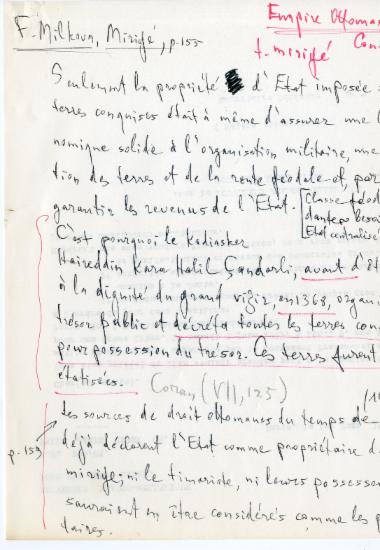 Empire Ottoman
F. Milkova, Mirigé, p. 155
t. mirigé
Seulement la propriété d'Etat imposée
terres conquises était à même d'assurer une
nomique solide à l'organisation militaire, une
tion des terres et de la rente féodale et, par
garantir les revenus de l'Etat. [Classe féod
dante besoi
Etat centralisé
C'est pourquoi le Kadiasker
Haireddin Kara Halil Çandarli, avant d'êt
à la dignité du grand vizir, en 1368, organ
trésor public et décréta toutes les terres con
pour possession du trésor. Ces terres furent
étatisées. Coran (VII, 125)
Les sources de droit ottomanes du temps de
déjà déclarent l'Etat comme propriétaire d
p. 159
mirige; ni le timariote, ni leurs possesso
sauraient en être considérés comme les p
taires.